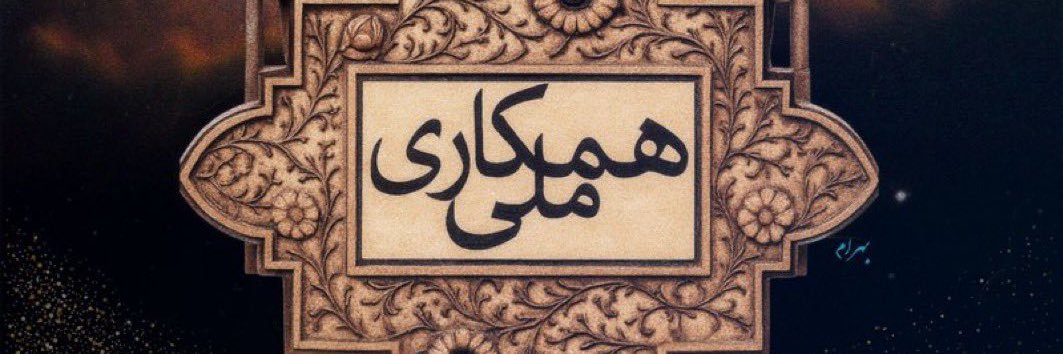 همکاری
ملی
بهرام